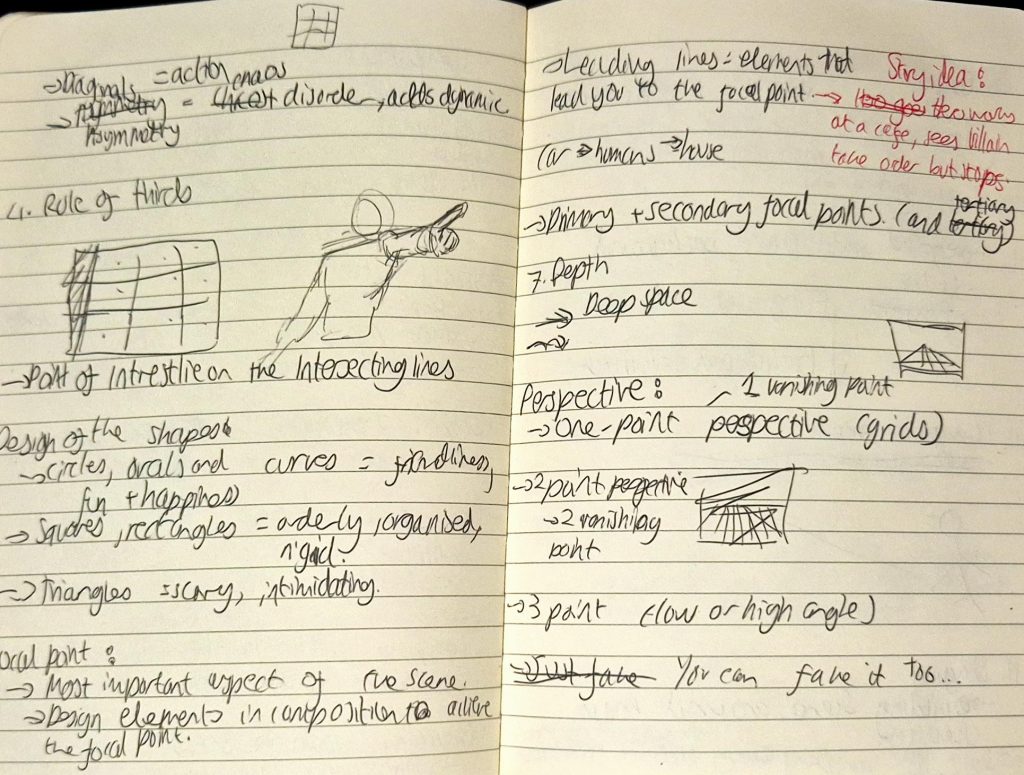 →Diagnals = action chaos
→ Asymmetry = disorder, actos dynamic.
4. Rule of thirds
→Point of Intrest lie on the Intersecting lines
Design of the shapes:
→circles, ovals and curves = friendliness,
fun + happiness
→ Squares, rectangles = orderly, organised,
rigid.
→Triangles = scary, intimidating.
ocal point:
→ Most important aspect of the scene.
→Design elements in composition to achieve
the focal point.
→Leading lines = elements that
lead you to the focal point →
Car → humans → house
→Primary + secondary focal points. (and tertiary)
7. Depth
→ Deep space
Perspective:
1 vanishing point
→One-point perspective (grids)
→2 point perspective
→2 vanishing
point
→3 point (low or high angle)
→Just fake You can fake it too...
Story idea:
the many
at a cafe, sees villain
take order but stops.